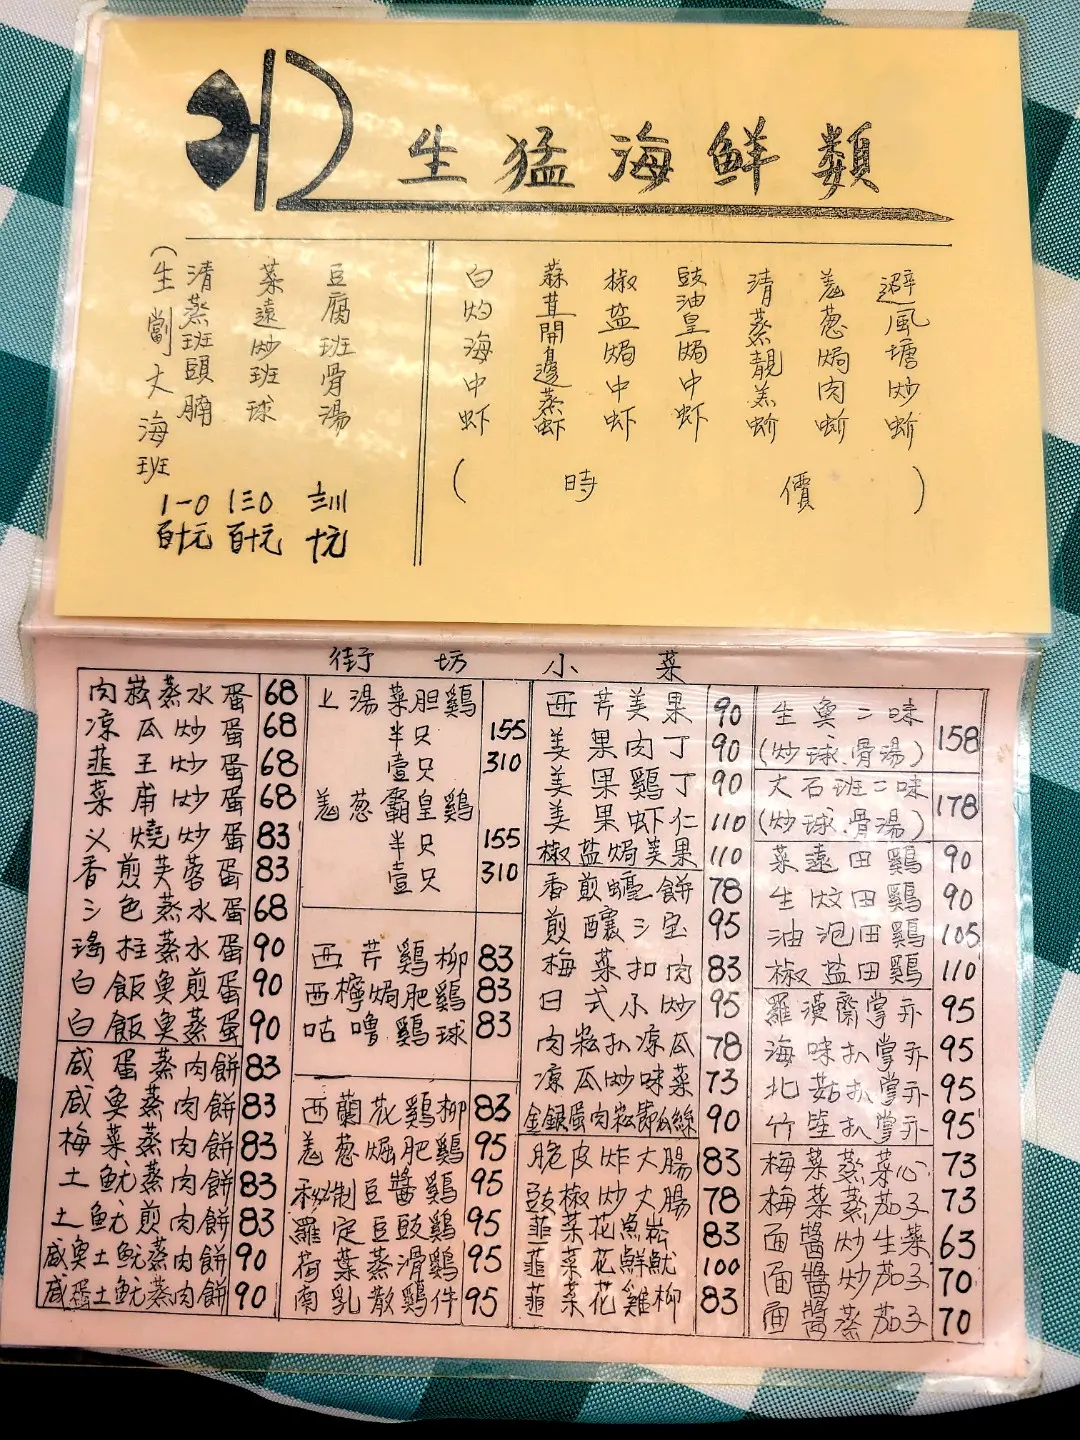 生猛海鮮類
避風塘炒蚧
羌葱焗肉蚧
清蒸靚羔蚧
豉油皇焗中虾
椒盐焗中虾
蒜茸開邊蒸虾
白灼海中虾
(時價)
豆腐班骨湯
菜遠炒班球
清蒸班頭腩
(生劏大海班
1一0 百十元
1三0 百十元
十元
街坊小菜
肉崧蒸水蛋 68
凉瓜炒蛋 68
韮王炒蛋 68
菜甫炒蛋 68
义燒炒蛋 83
香煎芙蓉蛋 83
三色蒸水蛋 68
瑤柱蒸水蛋 90
白飯魚煎蛋 90
白飯魚蒸蛋 90
咸蛋蒸肉餅 83
咸魚蒸肉餅 83
梅菜蒸肉餅 83
土魷蒸肉餅 83
土魷煎肉餅 83
咸魚土魷蒸肉餅 90
咸蛋土魷蒸肉餅 90
上湯菜胆鷄
半只 155
壹只 310
羌葱霸皇鷄
半只 155
壹只 310
西芹鷄柳 83
西檸焗肥鷄 83
咕嚕鷄球 83
西蘭花鷄柳 83
羌葱焗肥鷄 95
秘制豆醬鷄 95
羅定豆豉鷄 95
荷葉蒸滑鷄 95
南乳散鷄件 95
西芹美果 90
美果肉丁 90
美果鷄丁 90
美果虾仁 110
椒盐焗美果 110
香煎蠔餅 78
煎釀三宝 95
梅菜扣肉 83
日式小炒 95
肉崧扒凉瓜 78
凉瓜炒味菜 73
金銀蛋肉崧節瓜絲 90
脆皮炸大腸 83
豉椒炒大腸 78
韮菜花魚崧 83
韮菜花鮮魷 100
韮菜花雞柳 83
生魚二味
(炒球.骨湯) 158
大石班二味
(炒球.骨湯) 178
菜遠田鷄 90
生炆田鷄 90
油泡田鷄 105
椒盐田鷄 110
羅漢齋掌亓 95
海味扒掌亓 95
北菇扒掌亓 95
竹笙扒掌亓 95
梅菜蒸菜心 73
梅菜蒸茄子 73
面醬炒生菜 63
面醬炒茄子 70
面醬蒸茄子 70